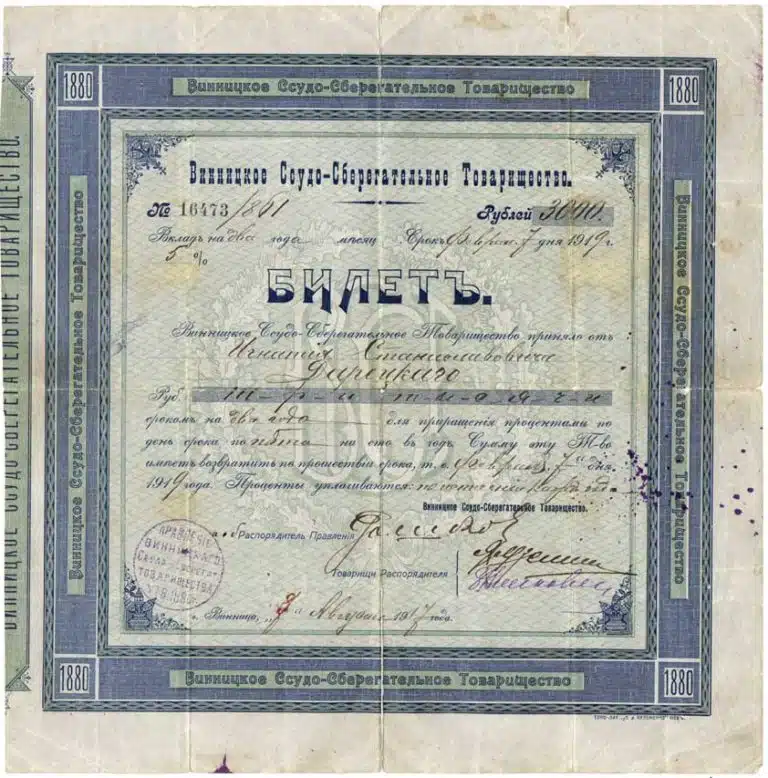 1880
Винницкое Ссудо-Сберегательное Товарищество
1880
ВИННИЦКОЕ ССУДО-СБЕРЕГАТЕЛЬНОЕ ТОВАРИЩЕСТВО.
Винницкое Ссудо-Сберегательное Товарищество
Винницкое Ссудо-Сберегательное Товарищество
Винницкое Ссудо-Сберегательное Товарищество.
№ 16473/861 Рублей 3000.
Вкладъ на два года мѣсяц Срокъ 7 дня 1919 г.
5 %
БИЛЕТЪ.
Винницкое Ссудо-Сберегательное Товарищество приняло отъ
Игнатія Станиславовича
Руб. три тысячи
срокомъ на два года для приращенія процентами по
день срока по пяти на сто въ годъ. Сумму эту Т-во
имѣетъ возвратить по прошествіи срока, т. е. 7 дня
1919 года. Проценты уплачиваются:
Винницкое Ссудо-Сберегательное Товарищество.
Распорядитель Правленія
Товарищи Распорядителя
ПРАВЛЕНІЕ
ВИННИЦКАГО
ТОВАРИЩЕСТВА
г. Винница, 7 Августа 1917 года.
1880
Винницкое Ссудо-Сберегательное Товарищество
1880